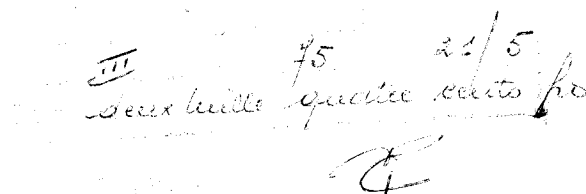 III 75 21/5
deux mille quatre cents